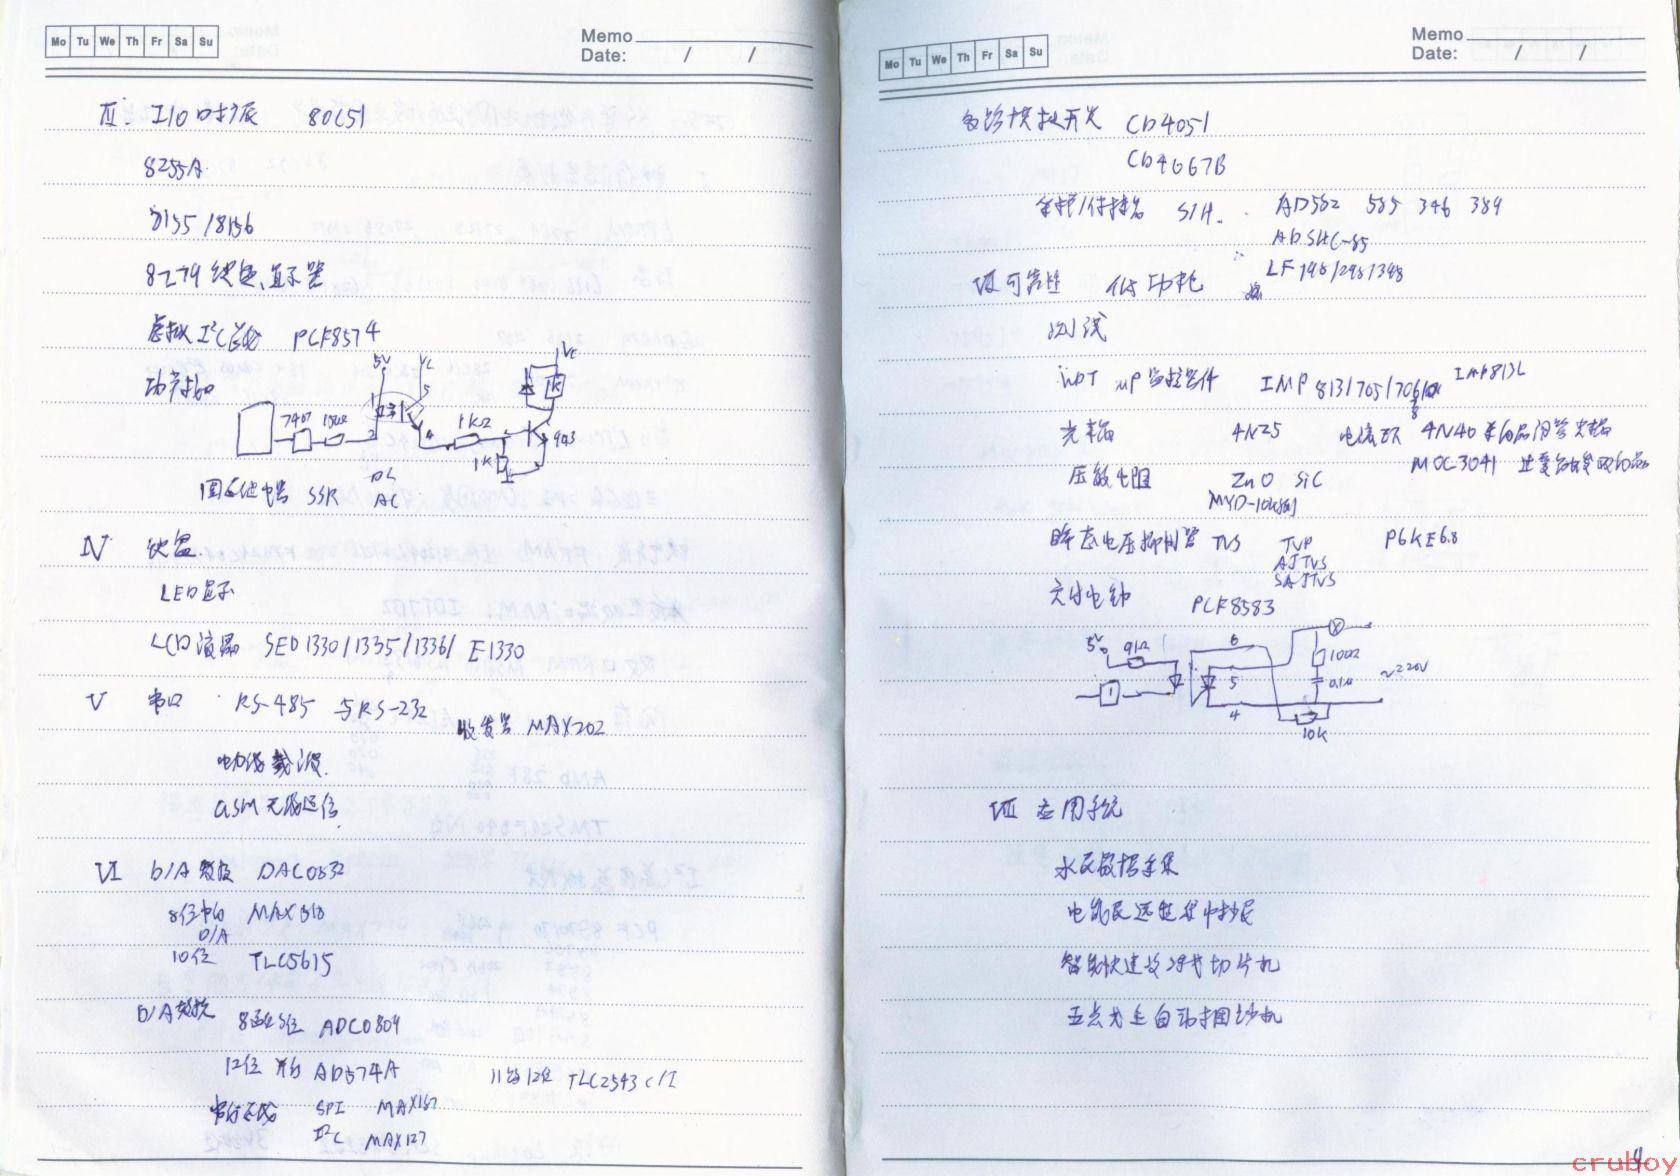 Mo Tu We Th Fr Sa Su
Memo
Date: / /
I/O 口扩展 80C51
8255A
8155/8156
8279 键盘、显示器
虚拟 I²C总线 PCF8574
功率接口
5V VC VC
1 5 1K
7407 150Ω 2 4 1KΩ
1K
固态继电器 SSR DC
AC
IV 键盘
LED显示
LCD 液晶 SED1330/1335/1336/ E1330
V 串口 RS-485 与RS-232 收发器 MAX202
电力线载波
GSM 无线通信
VI D/A 数模 DAC0832
8位串行 D/A
10位 TLC5615
8位 ADC0809
12位 并行 AD574A 11路12位 TLC2543C/I
SPI MAX187
I²C MAX127
Mo Tu We Th Fr Sa Su
Memo
Date: / /
多路模拟开关 CD4051
CD4067B
采样/保持器 S/H. AD582 585 346 389
ADSHC-85
LF198/298/398
VII 可靠性 低功耗
测试
WDT μP 监控器件 IMP 813/705/706/ IMP813L
光耦 4N25 4N40
MOC-3041
压敏电阻 ZnO SiC
MYD-10K
瞬态电压抑制管 TVS TVP P6KE6.8
AJTVS
SAJTVS
PCF8583
5V 91Ω 6
100Ω
5 0.1μ ~220V
1
4
10K
VIII 应用系统
水文数据采集
电能表远程集中抄表
智能快速冷冻切片机
自动捆钞机
4
cruboy